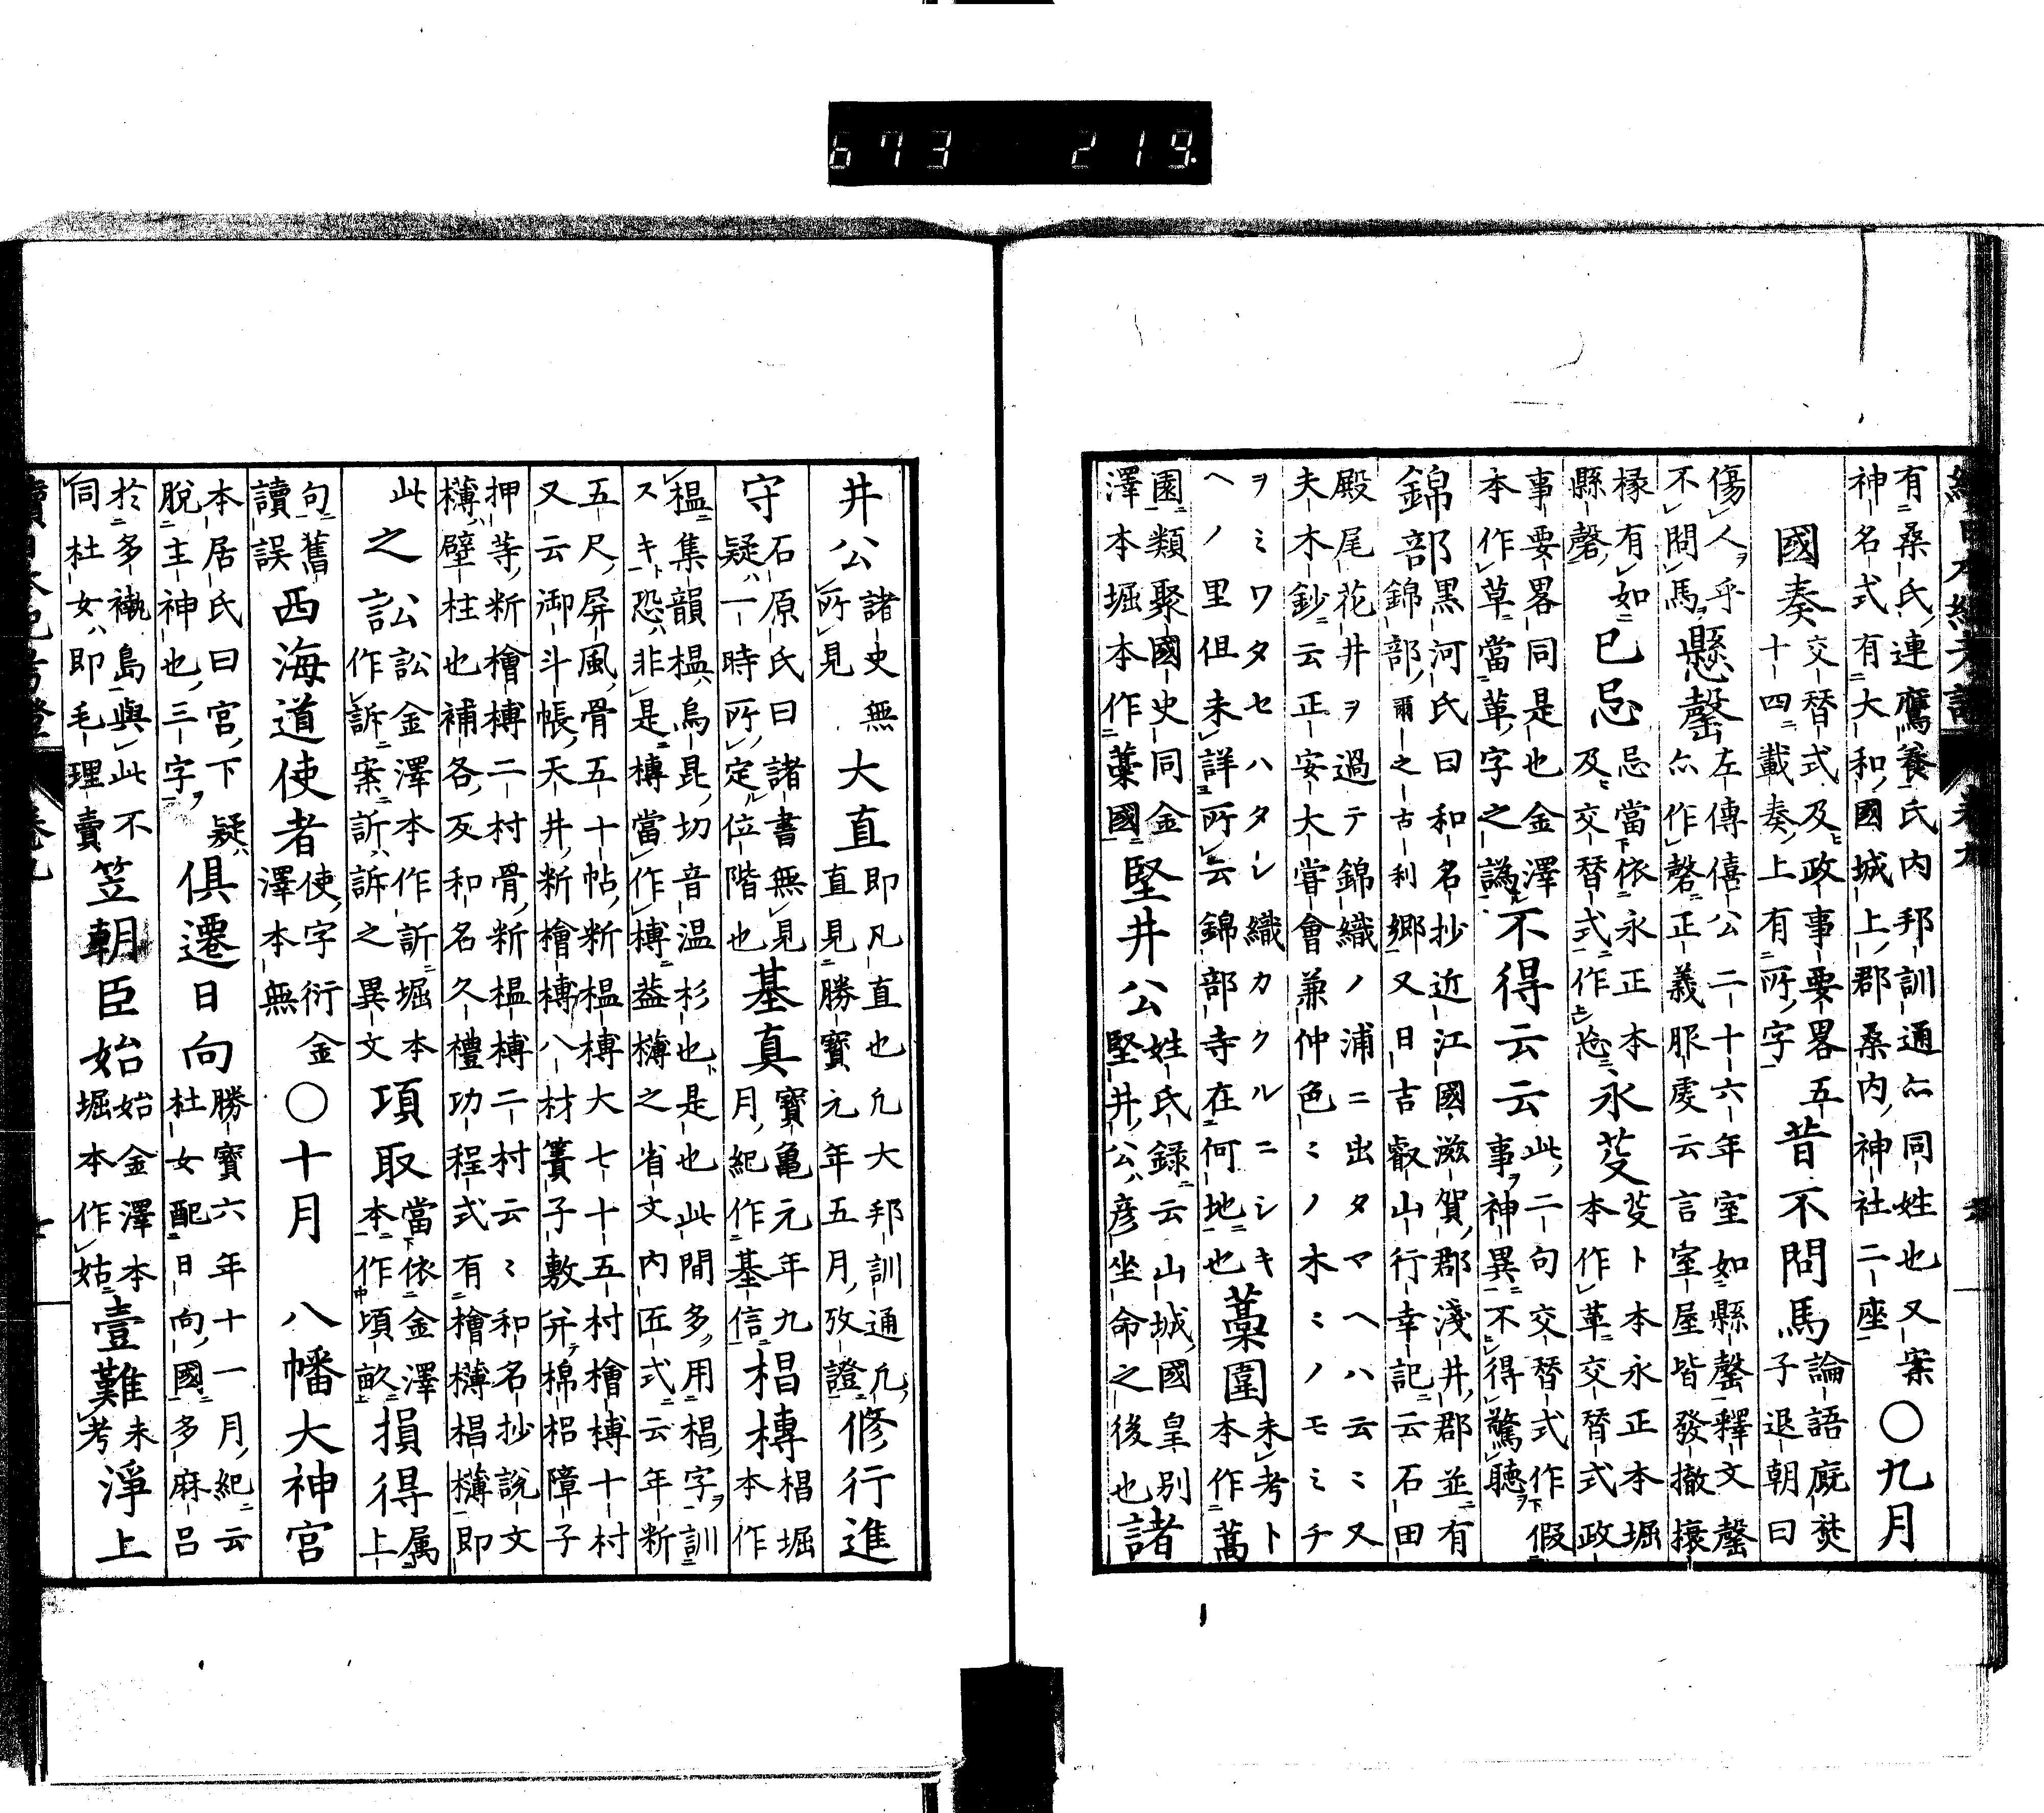 有桑氏連鷹養氏内邦訓通亦同姓也又案
神名式有大和國城上郡桑内神社二座
○九月
國奏
交替式及政事要畧五
十四載奏上有所字
昔不問馬
論語廐焚
子退朝曰
傷人乎
不問馬
懸罄
左傳僖公二十六年室如縣罄釋文罄
亦作磬正義服虔云言室屋皆發撤榱
椽有如
縣磬
已忌
忌當依永正本
及交替式作忘
永芟
芟卜本永正本堀
本作革交替式政
事要畧同是也金澤
本作草當革字之譌
不得云云
此二句交替式作假
事神異不得驚聽
錦部
黒河氏曰和名抄近江國滋賀郡淺井郡並有
錦部郷爾之古利又日吉叡山行幸記云石田
殿尾花井ヲ過テ錦織ノ浦ニ出タマヘハ云〻又
夫木鈔云正安大甞會兼仲色〻ノ木〻ノモミチ
ヲミワタセハタレ織カクルニシキ
ヘノ里但未詳所云錦部寺在何地也
藁園
未考卜
本作蒿
園類聚國史同金
澤本堀本作藁國
堅井公
姓氏録云山城國皇別
堅井公彦坐命之後也
諸
井公
諸史無
所見
大直
即凡直也凡大邦訓通凡
直見勝寶元年五月攷證
修行進
守
石原氏曰諸書無見
疑一時所定位階也
基真
寶亀元年九
月紀作基信
椙榑
椙堀
本作
榲集韻榲烏昆切音温杉也是也此間多用椙字訓
スキ恐非是榑當作榑蓋欂之省文内匠式云年料
五尺屏風骨五十帖料榲榑大七十五村檜榑十村
又云御斗帳天井料檜榑八材簀子敷并棉梠障子
押等料檜榑二村骨料榲榑二村云〻和名抄説文
欂壁柱也補各反和名久禮功程式有檜欂椙欂即
此
之訟
訟金澤本作訢堀本
作訴案訢訴之異文
項取
當依金澤
本作頃畝
損得
属上
句舊
讀誤
西海道使者
使字衍金
澤本無
○十月
八幡大神宮
本居氏曰宮下疑
脱主神也三字
俱遷日向
勝寶六年十一月紀云
杜女配日向國多麻呂
於多褹島與此不
同杜女即毛理賣
笠朝臣始
始金澤本
堀本作姑
壹難
未
考
淨上